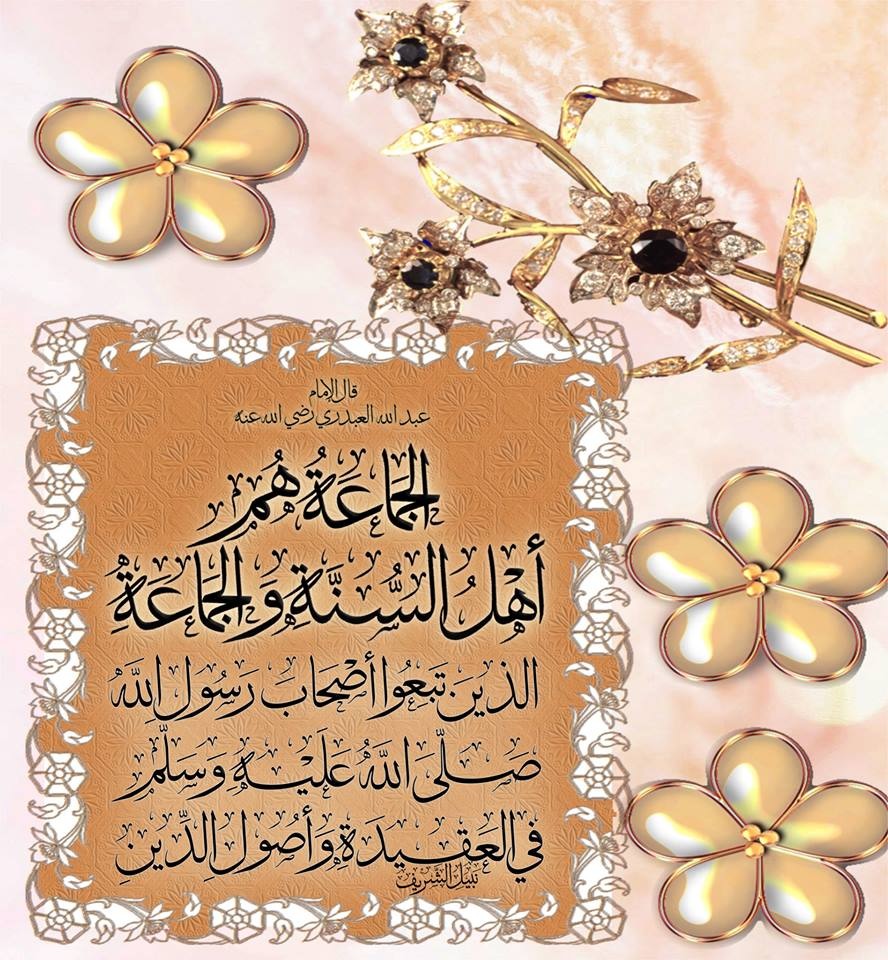 قال الإمام
عبد الله العبدري رضي الله عنه
الجَمَاعَةُ هُم
أَهْلُ السُّنَّةِ وَالجَمَاعَةِ
الذين تَبِعُوا أَصْحَابَ رَسُول اللَّه
صَلَّى اللَّهُ عَلَيْهِ وَسَلَّم
في العَقِيدَةِ وَأُصُول الدِّينِ
نبيل الشريف